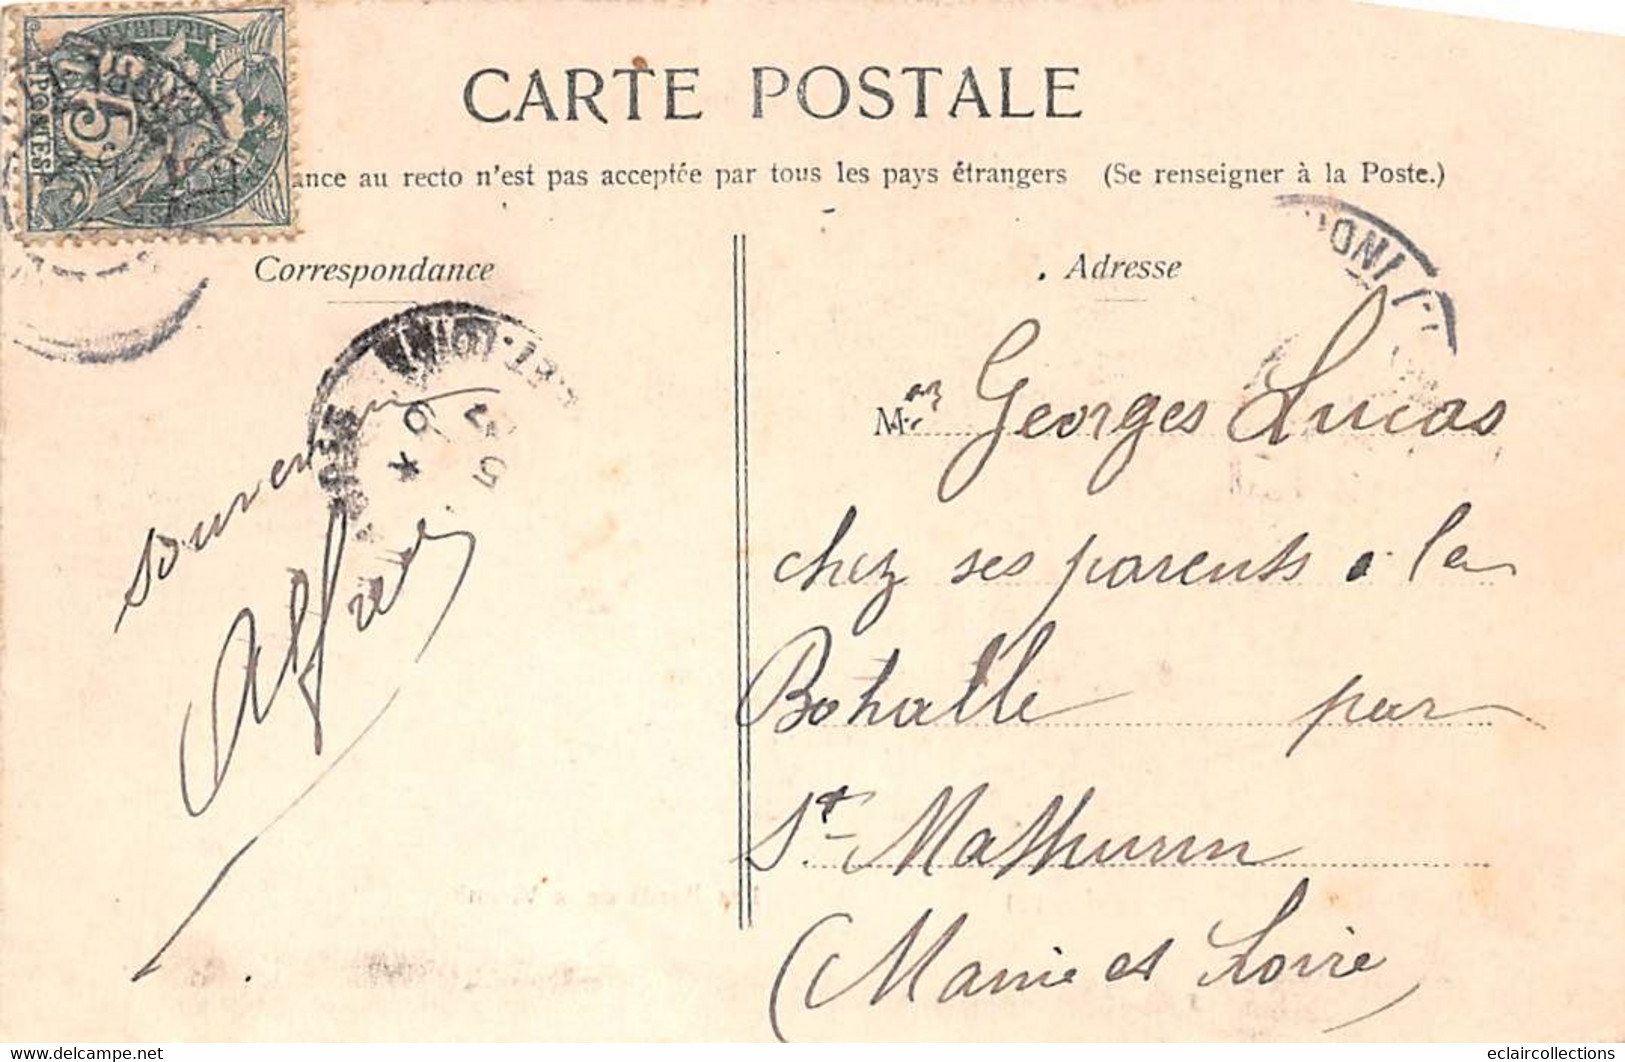 CARTE POSTALE
ance au recto n'est pas acceptée par tous les pays étrangers (Se renseigner à la Poste.)
5
POSTES
Correspondance
Souvenir
Alfred
Adresse
Mr Georges Lucas
chez ses parents a la
Bohalle par
St Mathurin
(Maine et Loire)
eclaircollections